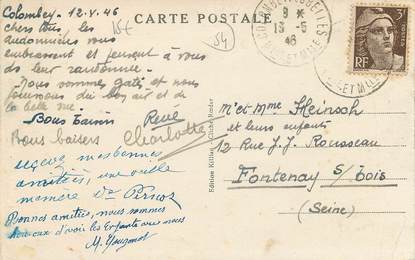 Colombey - 12.V.46
chers tous, les
audonniens vous
embrassent et pensent à vous
ds leur randonnée.
Nous sommes gâté et nous
jouissons du bon air et de
la belle vie.
Bons baisers René
Bons baisers Charlotte
reçevez mes bonnes
amitiés, une vieille
memère
Bonnes amitiés, nous sommes
heureux d'avoir les Enfants avec nous
M.
15f
54
CARTE POSTALE
COLOMBEY
9 H
13-5
46
3F
RF
Edition Killian
Mr et Mme Heinsch
et leurs enfants
12 Rue J.J. Rousseau
Fontenay s/bois
(Seine)